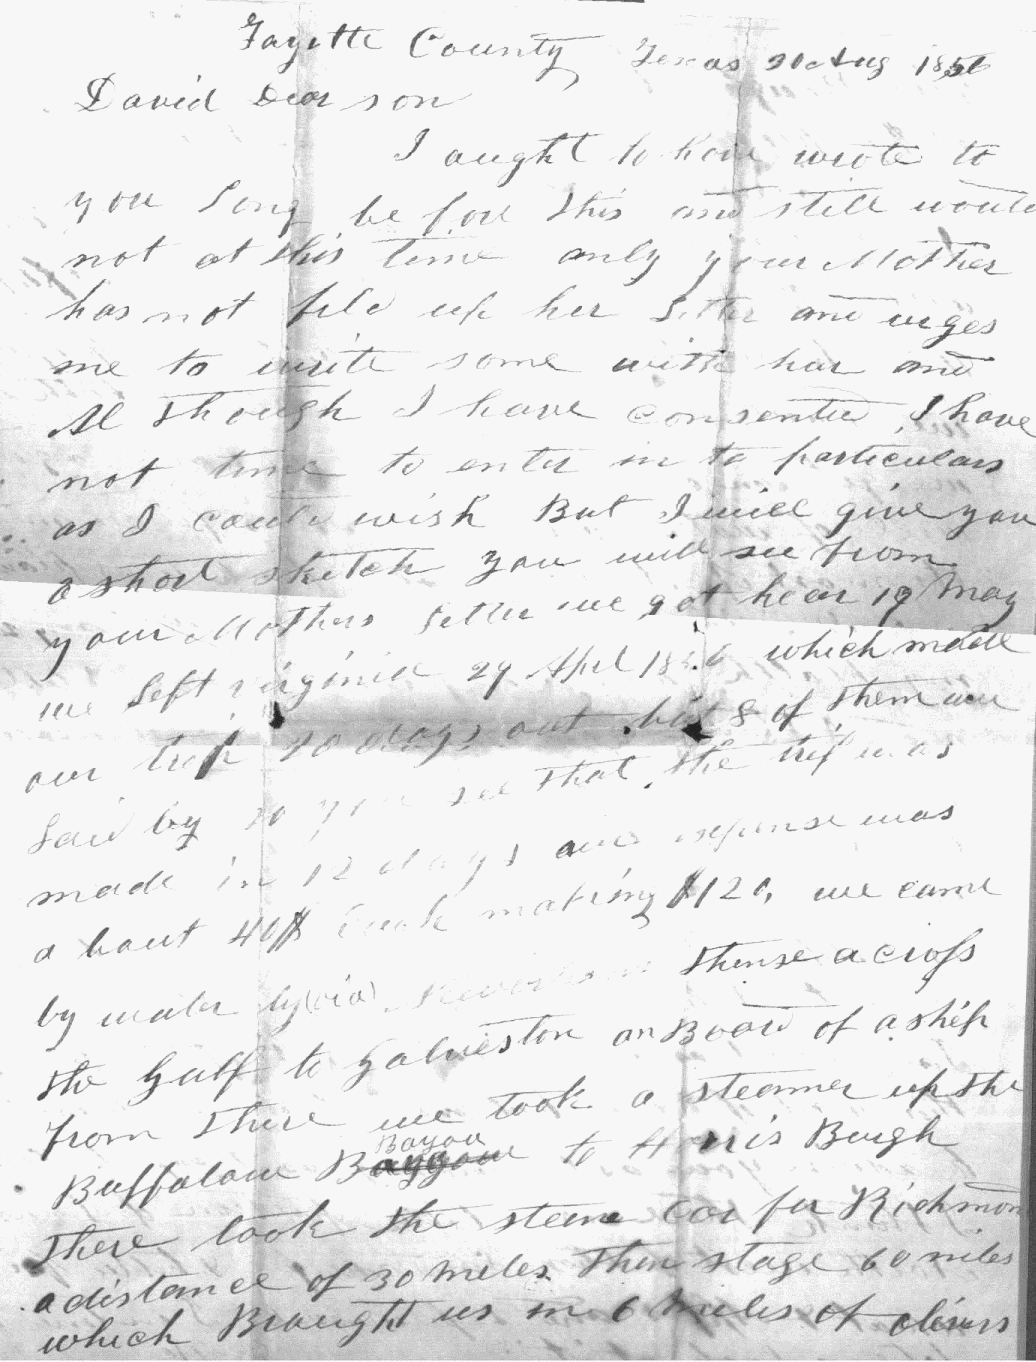 Fayette County Texas 30 Aug 185
David Dear son
I aught to have wrote to
you long be fore this and still would
not at this time only your Mother
has not fild up her Letter and urges
me to write some with har and
Al though I have consented I have
not time to enter in to particulars
as I could wish But I will give you
a short sketch you will see from
your Mothers Letter we got hear 19 May
we Left virginia 29 Apl 18 6 which made
our trip 20 days out but 8 of them we
Laid by so you see that the trip was
made in 12 days and expense was
a bout 40$ Each making $120, we came
by water by (via) thense a cross
the Gulf to Galveston on Board of a ship
from there we took a steamer up the
Buffalow Bayou to Harris Burgh
there took the steam Car for Richmon
a distance of 30 Miles then stage 60 miles
which Brought us in 6 Miles of olivers